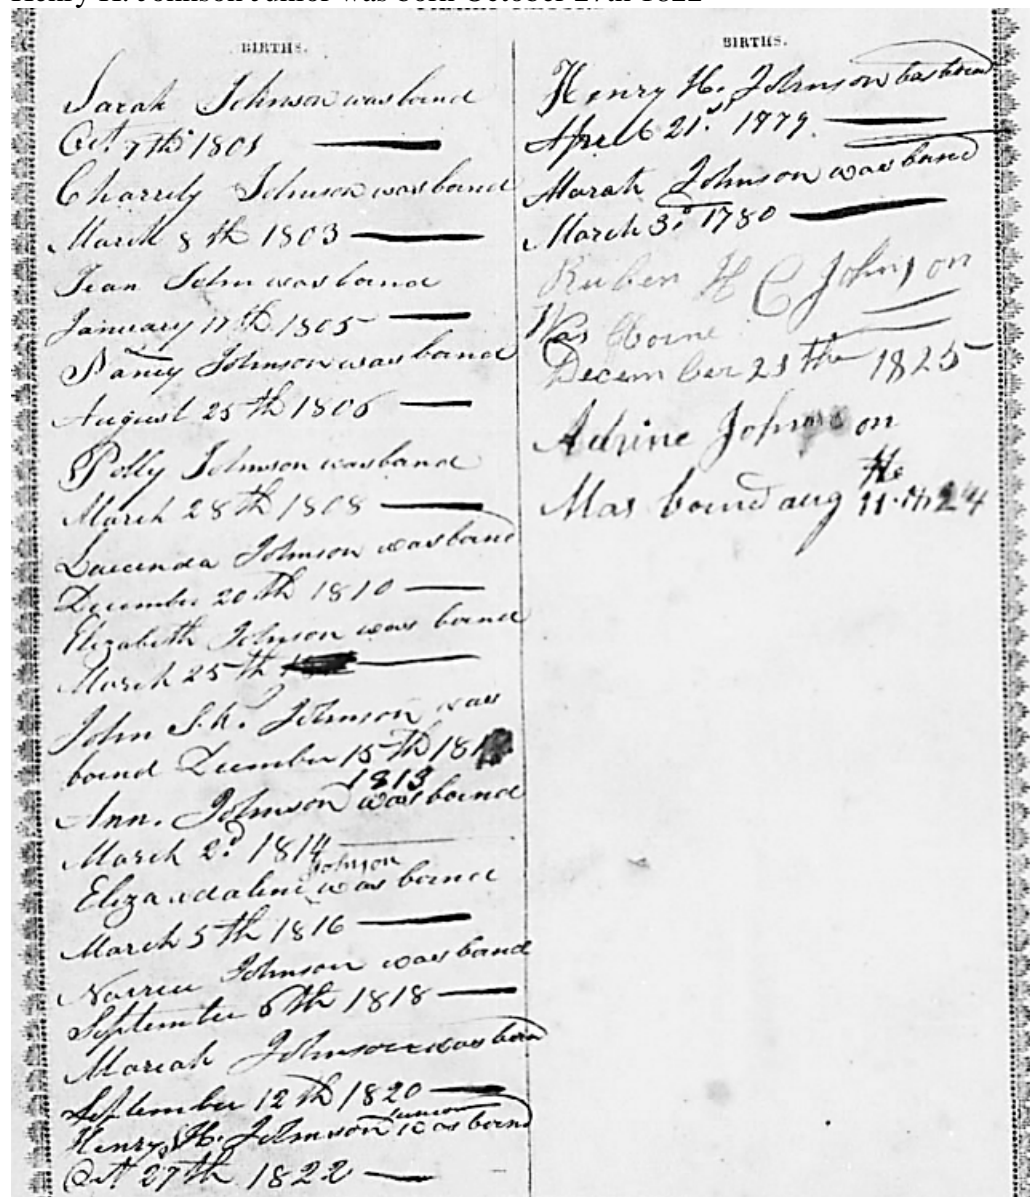 Henry H. Johnson Junior was born October 27th 1822
BIRTHS.
Sarah Johnson was bornd
Oct 7th 1801
Charrity Johnson was bornd
March 8th 1803
Jean John was bornd
January 17th 1805
Nancy Johnson was bornd
August 25th 1806
Polly Johnson was bornd
March 28th 1808
Lucinda Johnson was bornd
December 20th 1810
Elizabeth Johnson was bornd
March 25th
John S. K. Johnson was
bornd December 15th 181
1813
Ann. Johnson was bornd
March 2d 1814
Johnson
Eliza was bornd
March 5th 1816
Johnson was bornd
September 6th 1818
Mariah Johnson was born
September 12th 1820
Junior
Henry H. Johnson was bornd
Oct 27th 1822
BIRTHS.
Henry H. Johnson was bornd
April 21st 1779.
Marah Johnson was bornd
March 3d 1780
Ruben H C Johnson
Was Borne
December 21th 1825
Adrine Johnson
Was bornd aug 11 the 24